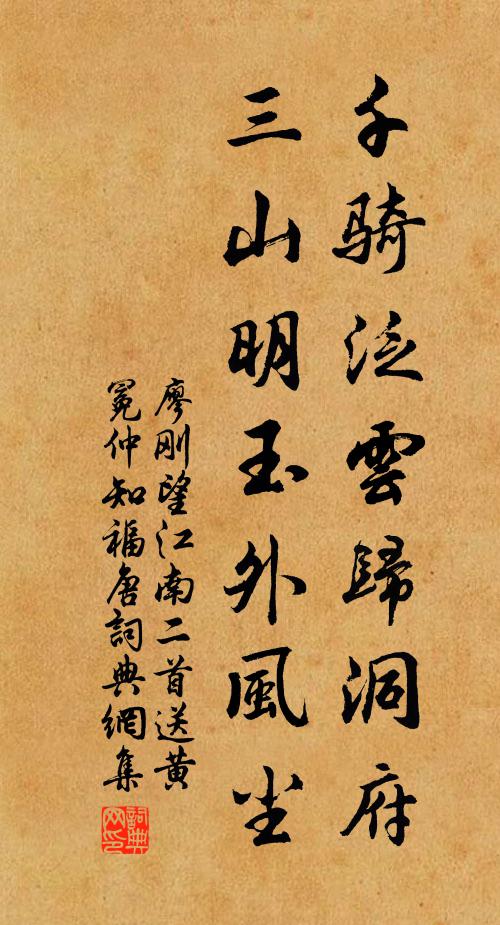 千骑泛雲歸洞府
三山明玉外風尘
廖刚望江南二首送黄
冕仲知福唐詞典網集
詞典
网印